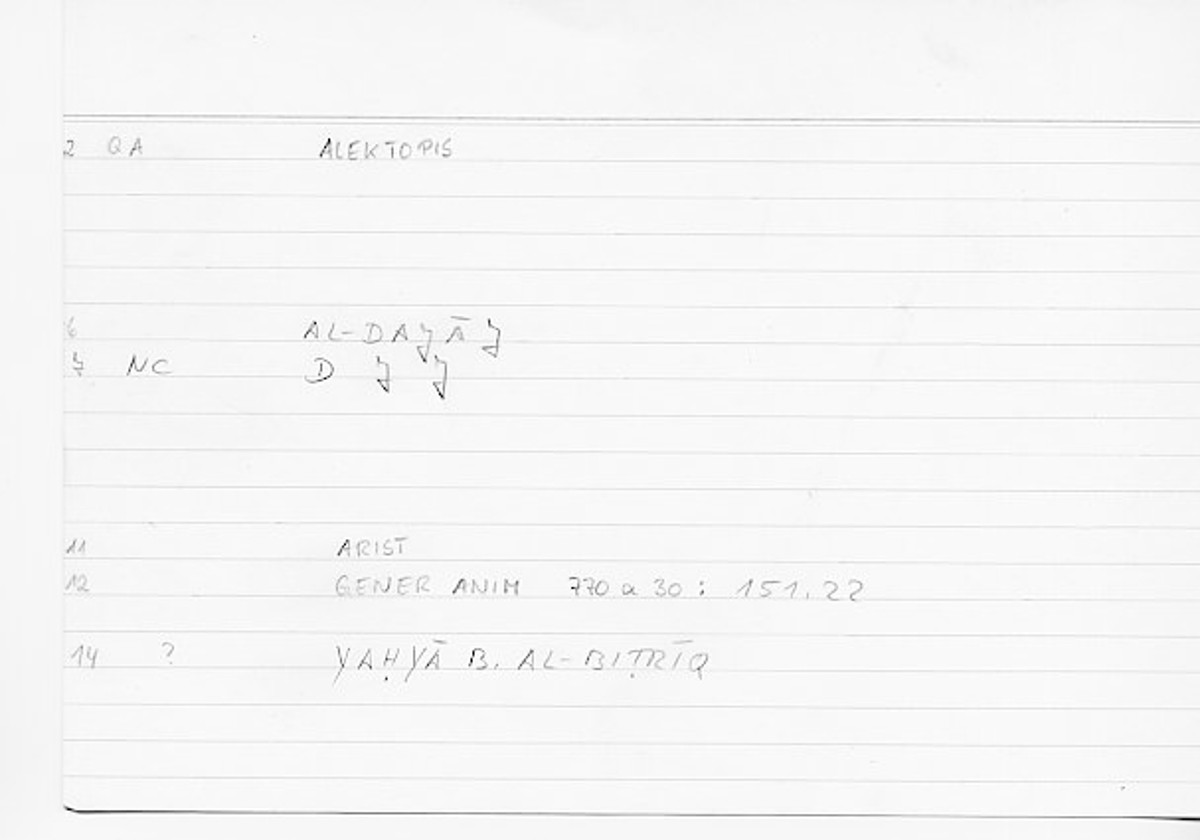 2 QA ALEKTOPIS
6 AL-DAJĀJ
7 NC D J J
11 ARIST
12 GENER ANIM 770 a 30 : 151.22
14 ? YAḤYĀ B. AL-BIṬRĪQ